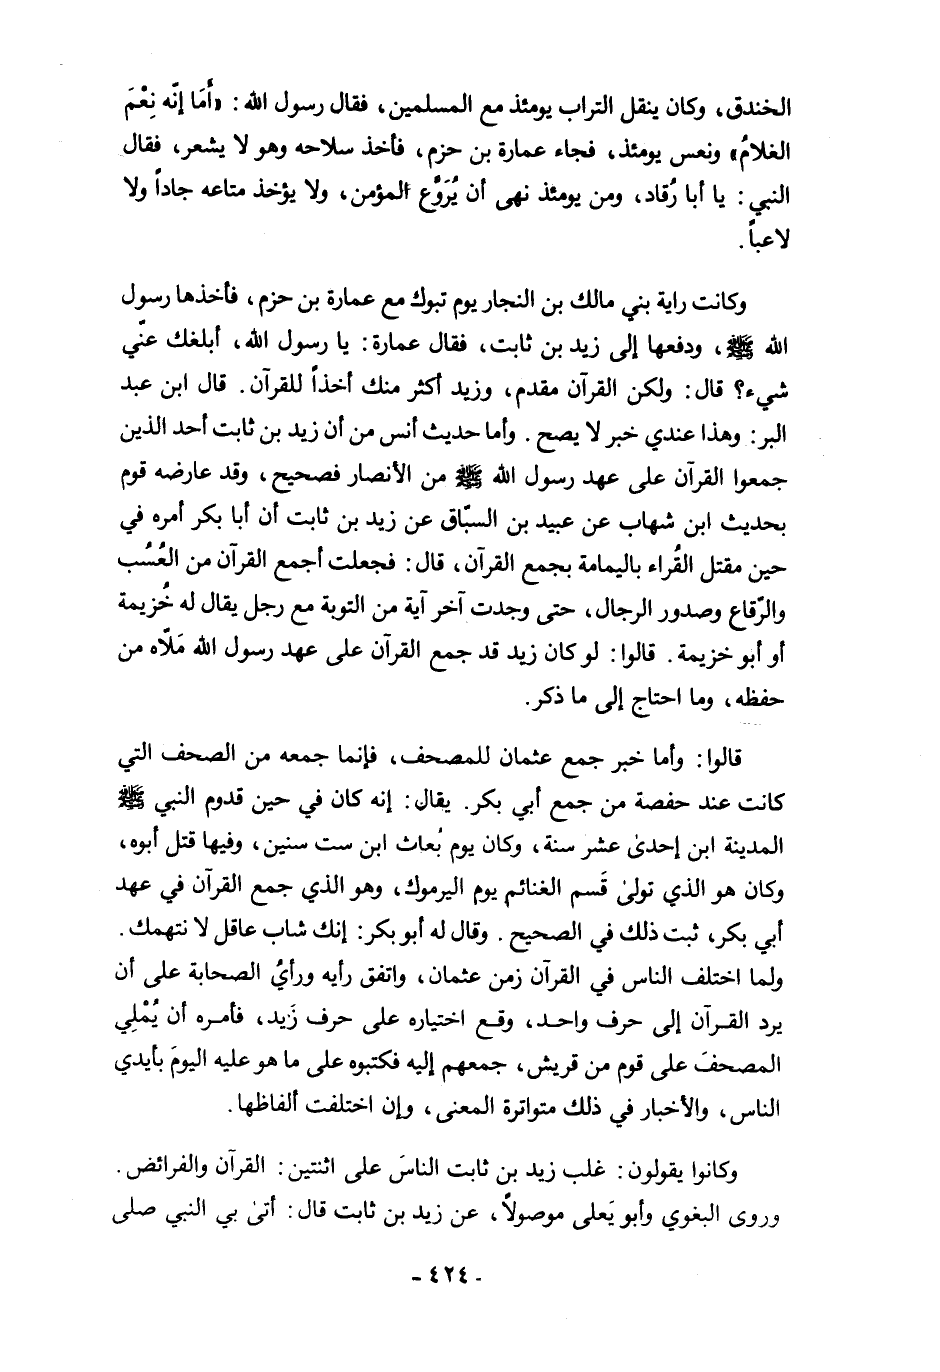 الخندق، وكان ينقل التراب يومئذ مع المسلمين، فقال رسول الله: «أَمَا إنّه نِعْمَ
الغلامُ» ونعس يومئذ، فجاء عمارة بن حزم، فأخذ سلاحه وهو لا يشعر، فقال
النبي: يا أبا رُقاد، ومن يومئذ نهى أن يُرَوَّع المؤمن، ولا يؤخذ متاعه جاداً ولا
لاعباً.
وكانت راية بني مالك بن النجار يوم تبوك مع عمارة بن حزم، فأخذها رسول
الله ﷺ، ودفعها إلى زيد بن ثابت، فقال عمارة: يا رسول الله، أبلغك عنّي
شيء؟ قال: ولكن القرآن مقدم، وزيد أكثر منك أخذاً للقرآن. قال ابن عبد
البر: وهذا عندي خبر لا يصح. وأما حديث أنس من أن زيد بن ثابت أحد الذين
جمعوا القرآن على عهد رسول الله ﷺ من الأنصار فصحيح، وقد عارضه قوم
بحديث ابن شهاب عن عبيد بن السبّاق عن زيد بن ثابت أن أبا بكر أمره في
حين مقتل القُراء باليمامة بجمع القرآن، قال: فجعلت أجمع القرآن من العُسُب
والرّقاع وصدور الرجال، حتى وجدت آخر آية من التوبة مع رجل يقال له خُزيمة
أو أبو خزيمة. قالوا: لو كان زيد قد جمع القرآن على عهد رسول الله مَلّاه من
حفظه، وما احتاج إلى ما ذكر.
قالوا: وأما خبر جمع عثمان للمصحف، فإنما جمعه من الصحف التي
كانت عند حفصة من جمع أبي بكر. يقال: إنه كان في حين قدوم النبي ﷺ
المدينة ابن إحدىٰ عشر سنة، وكان يوم بُعاث ابن ست سنين، وفيها قتل أبوه،
وكان هو الذي تولىٰ قَسم الغنائم يوم اليرموك، وهو الذي جمع القرآن في عهد
أبي بكر، ثبت ذلك في الصحيح. وقال له أبو بكر: إنك شاب عاقل لا نتهمك.
ولما اختلف الناس في القرآن زمن عثمان، واتفق رأيه ورأيُ الصحابة على أن
يرد القرآن إلى حرف واحد، وقع اختياره على حرف زَيد، فأمره أن يُمْلِي
المصحفَ على قوم من قريش، جمعهم إليه فكتبوه على ما هو عليه اليومَ بأيدي
الناس، والأخبار في ذلك متواترة المعنى، وإن اختلفت ألفاظها.
وكانوا يقولون: غلب زيد بن ثابت الناسَ على اثنتين: القرآن والفرائض.
وروى البغوي وأبو يَعلى موصولاً، عن زيد بن ثابت قال: أتىٰ بي النبي صلى
- ٤٢٤ -